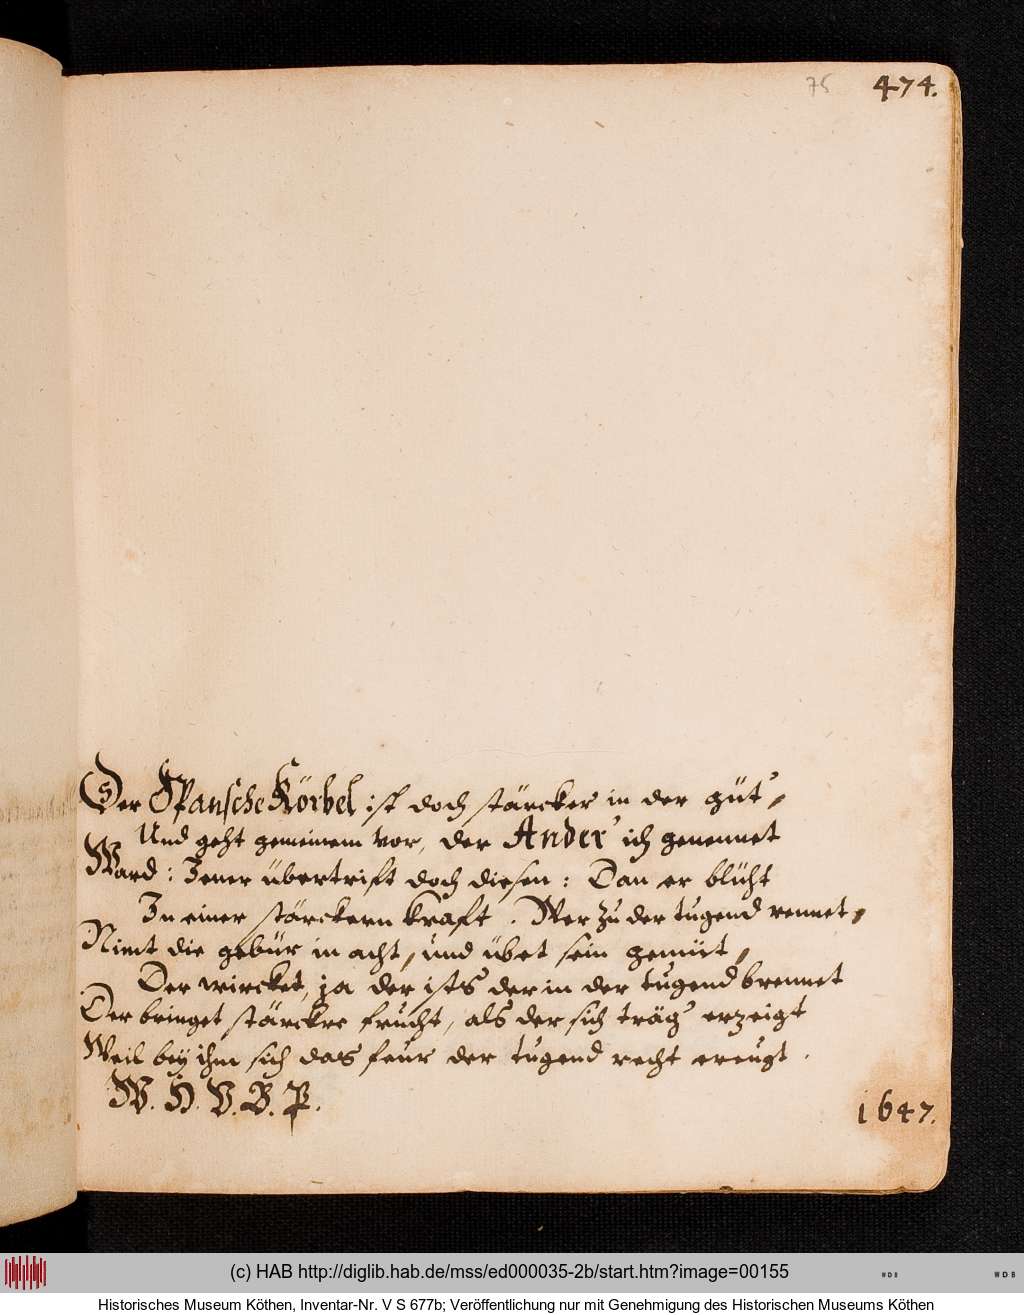 75 474.
Der Spansche Körbel ist doch stärcker in der güt',
Und geht gemeinem vor, der Ander' ich genennet
Ward: Jener übertrift doch diesen: Dan er blüht
In einer stärckern kraft. Wer zu der tugend rennet,
Nimt die gebür in acht, und übet sein gemüt,
Der wircket, ja der ists der in der tugend brennet
Der bringet stärckre frucht, als der sich träg' erzeigt
Weil bey ihm sich das feur der tugend recht ereugt.
W. H. V. B. P.
1647.
(c) HAB http://diglib.hab.de/mss/ed000035-2b/start.htm?image=00155
Historisches Museum Köthen, Inventar-Nr. V S 677b; Veröffentlichung nur mit Genehmigung des Historischen Museums Köthen